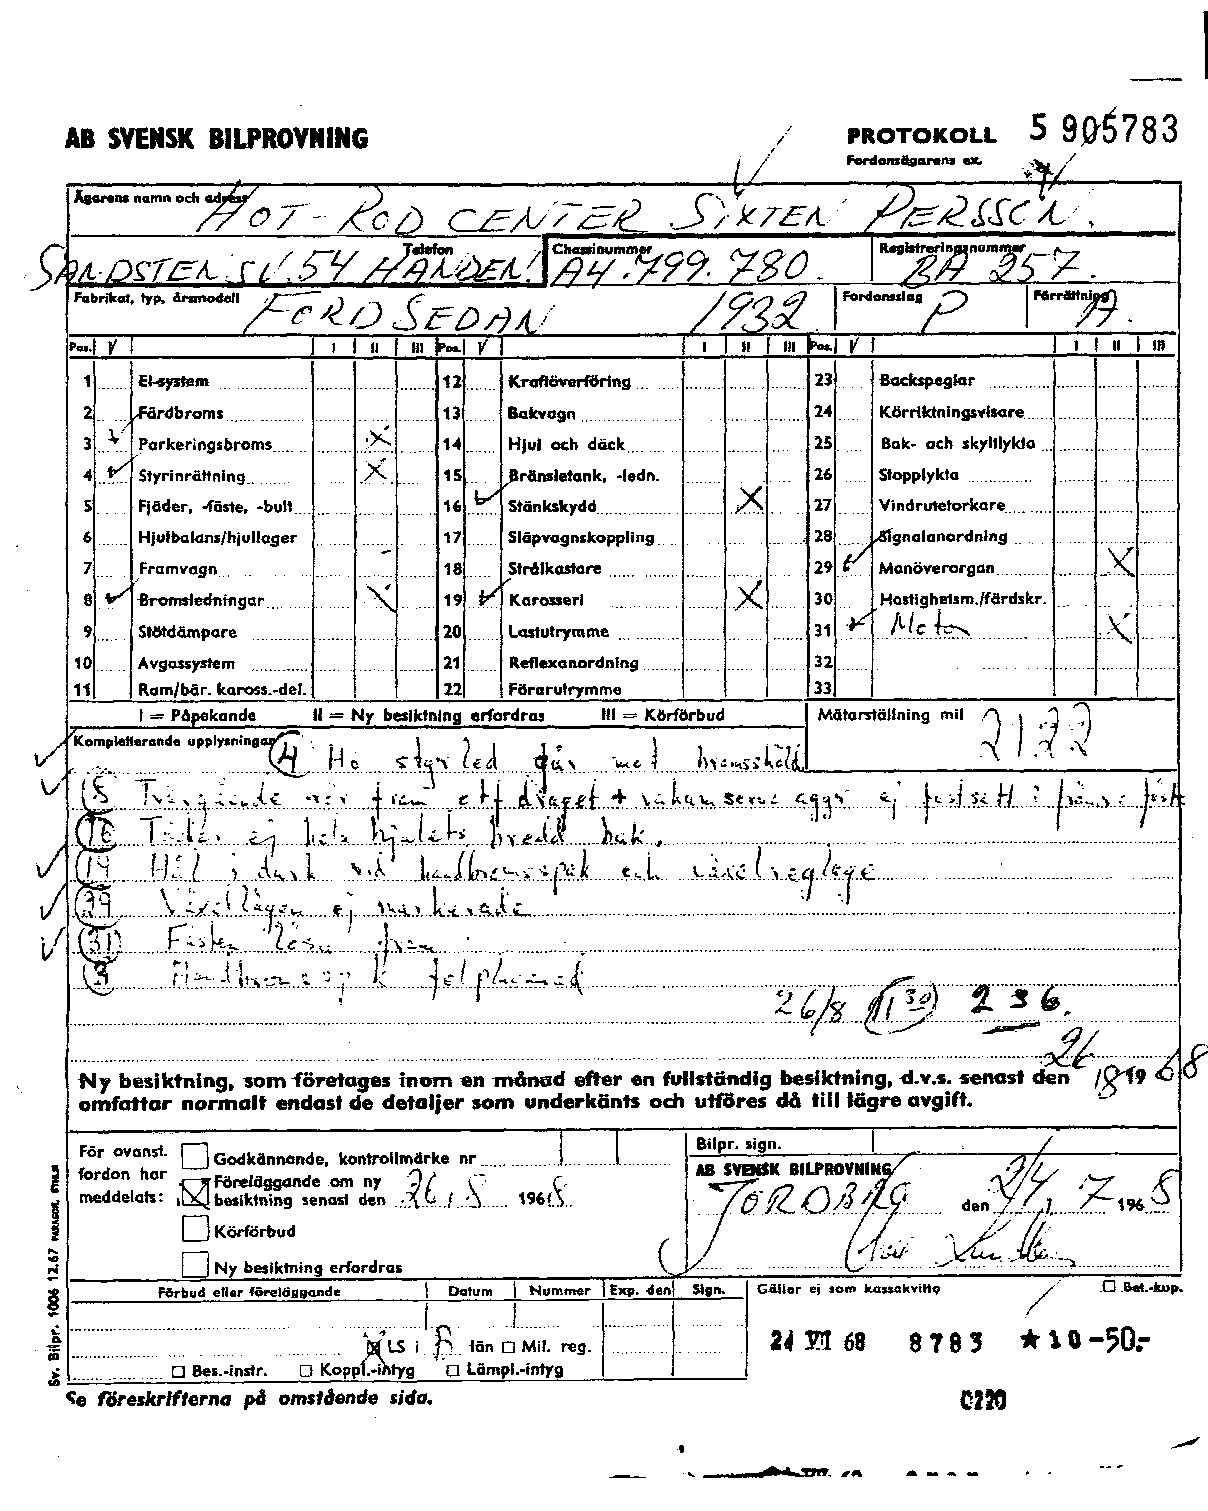 AB SVENSK BILPROVNING
PROTOKOLL 5 905783
Fordonsägarens ex.
Ägarens namn och adress HOT-ROD CENTER SIXTEN PERSSON.
SANDSTENSV.54 HANDEN! Telefon Chassinummer A4.799.780. Registreringsnummer BA 257.
Fabrikat, typ, årsmodell FORD SEDAN 1932 Fordonsslag P Förrättning A.
Pos. V I II III Pos. V I II III Pos. V I II III
1 El-system 12 Kraftöverföring 23 Backspeglar
2 Färdbroms 13 Bakvagn 24 Körriktningsvisare
3 Parkeringsbroms X 14 Hjul och däck 25 Bak- och skyltlykta
4 Styrinrättning X 15 Bränsletank, -ledn. 26 Stopplykta
5 Fjäder, -fäste, -bult 16 Stänkskydd X 27 Vindrutetorkare
6 Hjulbalans/hjullager 17 Släpvagnskoppling 28 Signalanordning
7 Framvagn 18 Strålkastare 29 Manöverorgan X
8 Bromsledningar X 19 Karosseri X 30 Hastighetsm./färdskr.
9 Stötdämpare 20 Lastutrymme 31 Motor X
10 Avgassystem 21 Reflexanordning 32
11 Ram/bär. kaross.-del. 22 Förarutrymme 33
I = Påpekande II = Ny besiktning erfordras III = Körförbud Mätarställning mil 2122
Kompletterande upplysningar 4 Hö styrled går mot bromssköld
8 rör fram draget + ej fastsatt i
16 Täcker ej hela hjulets bredd bak.
19 Hål i durk vid handbromsspak och växelreglage
29 Växellägen ej markerade
31 Fästen lösa fram
3 Handbromsspak felplacerad
26/8 11 30 236.
Ny besiktning, som företages inom en månad efter en fullständig besiktning, d.v.s. senast den 26/8 1968
omfattar normalt endast de detaljer som underkänts och utföres då till lägre avgift.
För ovanst. fordon har meddelats:
Godkännande, kontrollmärke nr
X Föreläggande om ny besiktning senast den 26, 8 1968
Körförbud
Ny besiktning erfordras
Bilpr. sign.
AB SVENSK BILPROVNING
JORDBRO den 24, 7 1968
Förbud eller föreläggande Datum Nummer Exp. den Sign.
X LS i B län Mil. reg.
Bes.-instr. Koppl.-intyg Lämpl.-intyg
Gäller ej som kassakvitto Bet.-kup.
24 VII 68 8783 ★10-50.-
Sv. Bilpr. 1006 12.67
Se föreskrifterna på omstående sida.
0220